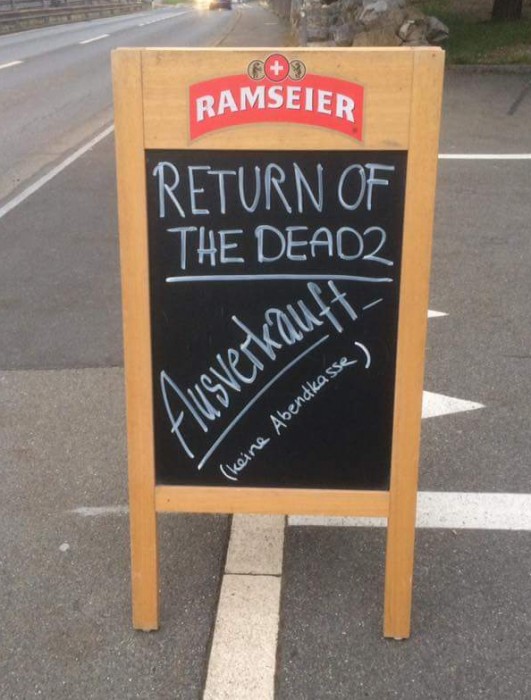 RAMSEIER
RETURN OF
THE DEAD2
Ausverkauft
(keine Abendkasse)